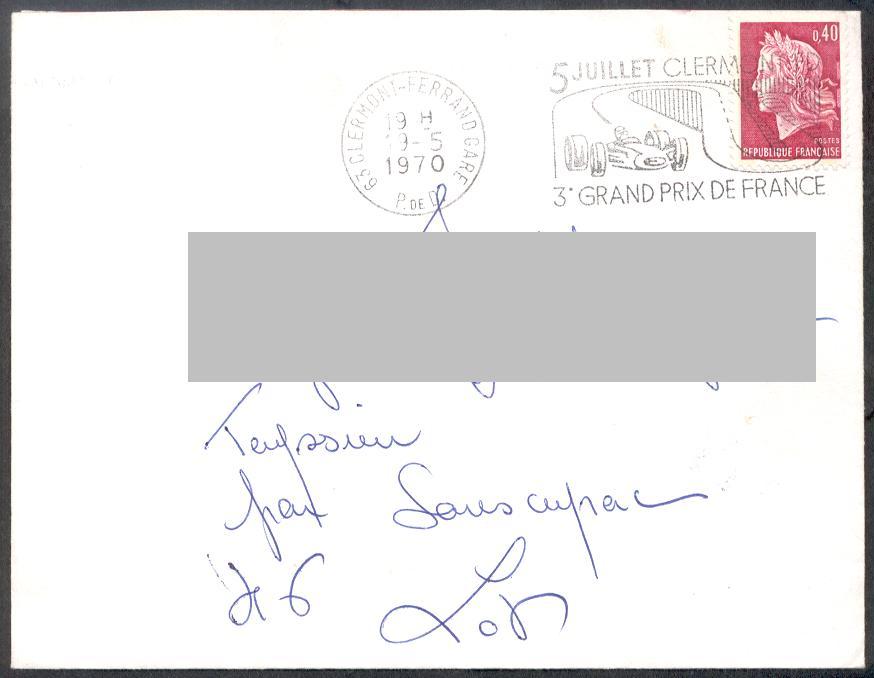 63 CLERMONT-FERRAND GARE
19 H
19-5
1970
P. DE D.
5 JUILLET CLERMONT
3e GRAND PRIX DE FRANCE
0,40
POSTES
REPUBLIQUE FRANÇAISE
Teyssieu
par
46 Lot